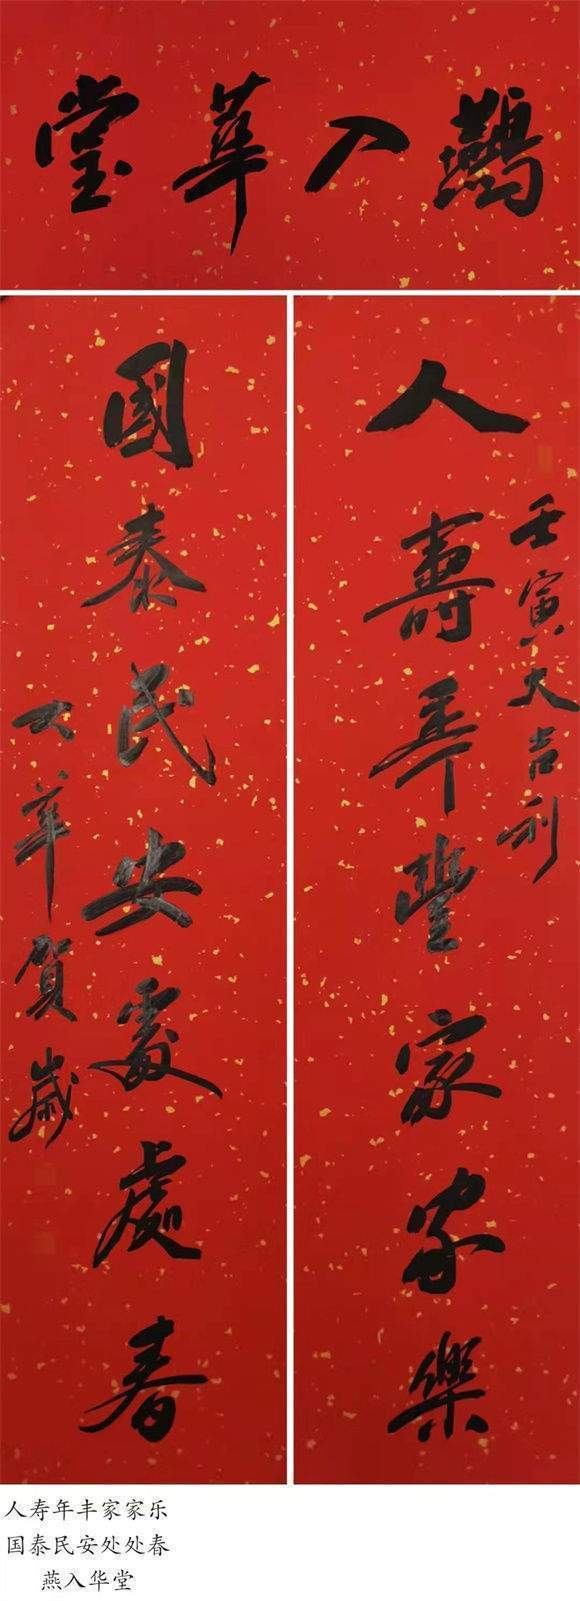 鷰入華堂
人壽年豐家家樂
壬寅大吉利
國泰民安處處春
大華賀歲
人寿年丰家家乐
国泰民安处处春
燕入华堂